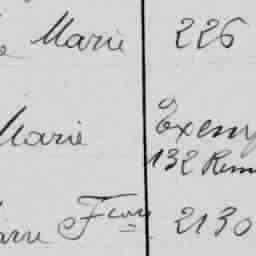 Marie 226
Marie Exemp
132 Rem
Fcois 2130